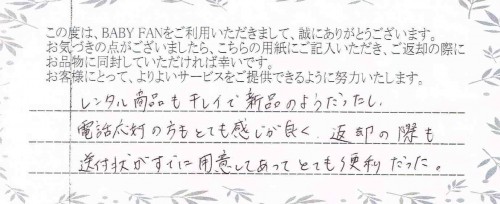 この度は、BABY FANをご利用いただきまして、誠にありがとうございます。
お気づきの点がございましたら、こちらの用紙にご記入いただき、ご返却の際に
お品物に同封していただければ幸いです。
お客様にとって、よりよいサービスをご提供できるように努力いたします。
レンタル商品もキレイで新品のようだったし、
電話応対の方もとても感じが良く、返却の際も
送付状がすでに用意してあってとても便利だった。